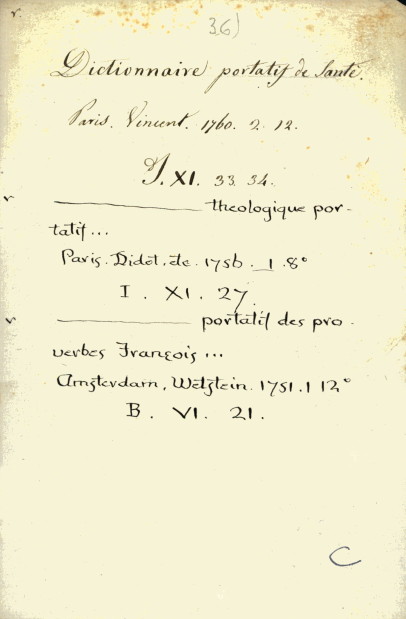 36)
Dictionnaire portatif de Santé.
Paris. Vincent. 1760. 2. 12.
J. XI. 33. 34.
theologique por-
tatif...
Paris. Didot, etc. 1756. 1. 8°
I. XI. 27.
portatif des pro-
verbes François...
Amsterdam, Wetstein. 1751. 1 12°
B. VI. 21.
C